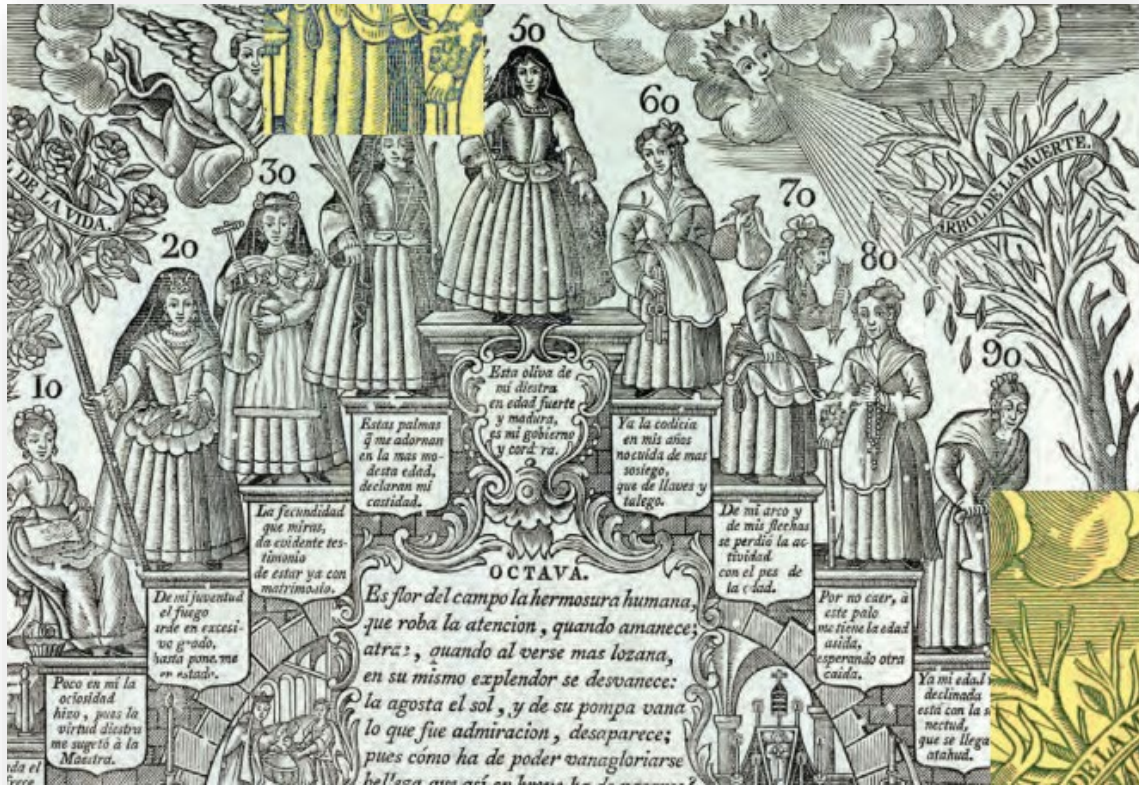 50
60
30
70
20
80
10
90
DE LA VIDA.
ARBOL DE LA MUERTE.
Poco en mí la
ociosidad
hizo, pues la
virtud diestra
me sugetó à la
Maestra.
De mi juventud
el fuego
arde en excesi-
vo grado,
hasta ponerme
en estado.
La fecundidad
que miras,
da evidente tes-
timonio
de estar ya con
matrimonio.
Estas palmas
q̃ me adornan
en la mas mo-
desta edad,
declaran mi
castidad.
Esta oliva de
mi diestra
en edad fuerte
y madura,
es mi gobierno
y
Ya la codicia
en mis años
no cuida de mas
sosiego,
que de llaves y
talego.
De mi arco y
de mis flechas
se perdió la ac-
tividad
con el pes de
la edad.
Por no caer, à
este palo
me tiene la edad
asida,
esperando otra
caida.
Ya mi edad
declinada
está con la
nectud,
que se llega
atahud.
OCTAVA.
Es flor del campo la hermosura humana,
que roba la atencion, quando amanece;
quando al verse mas lozana,
en su mismo explendor se desvanece:
la agosta el sol, y de su pompa vana
lo que fue admiracion, desaparece;
pues cómo ha de poder vanagloriarse
DE LA M